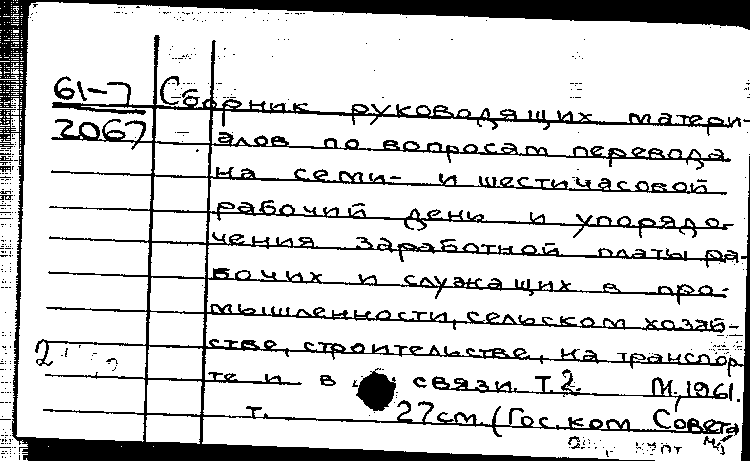 61-7 Сборник руководящих матери-
2067 алов по вопросам перевода
на семи- и шестичасовой
рабочий день и упорядо-
чения заработной платы ра-
бочих и служащих в про-
мышленности, сельском хозяй-
2 стве, строительстве, на транспор
те и в связи. Т.2. М., 1961.
т. 27см. (Гос. ком Совета